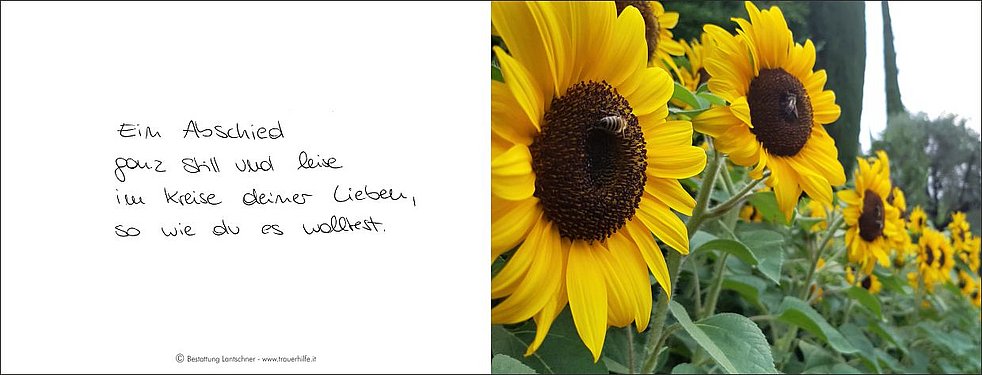 Ein Abschied
ganz still und leise
im Kreise deiner Lieben,
so wie du es wolltest.
© Bestattung Lantschner - www.trauerhilfe.it